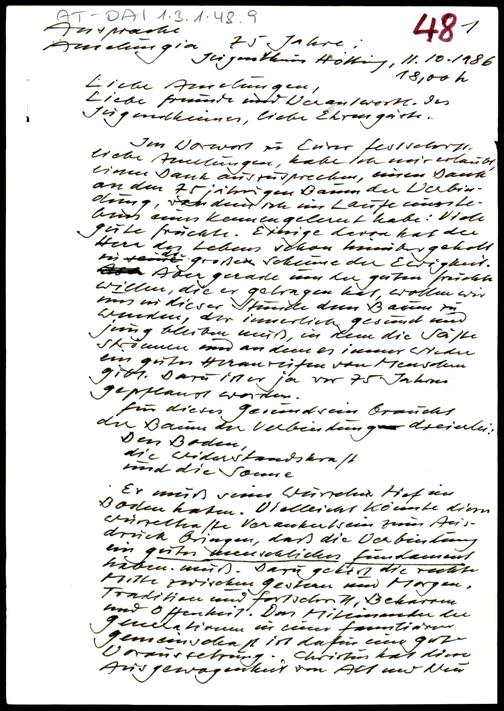 AT-DAI 1.3.1.48.9
48 1
Ansprache
Amelungia 75 Jahre;
Jugendhaus Hötting, 11.10.1986
18,00 h
Liebe Amelungen,
Liebe Freunde und Verantwortl. des
liebe Ehrengäste.
Im Vorwort zu Eurer Festschrift
liebe Amelungen, habe ich mir erlaubt,
einen Dank auszusprechen, einen Dank
an den 75 jährigen Baum der Verbin-
dung, von dem ich im Laufe meines Le-
bens eines kennengelernt habe: Viele
gute Früchte. Einige davon hat der
Herr des Lebens schon hinübergeholt
in die große Scheune der Ewigkeit.
Aber gerade um der guten Früchte
willen, die er getragen hat, wollen wir
uns in dieser Stunde dem Baum zu
wenden, der innerlich gesund und
jung bleiben muß, in dem die Säfte
strömen und an dem es immer wieder
ein gutes Heranreifen von Menschen
gibt. Dazu ist er ja vor 75 Jahren
gepflanzt worden.
Für dieses Gesundsein braucht
der Baum der Verbindung dreierlei:
Den Boden,
die Widerstandskraft
und die Sonne
Er muß seine Wurzeln tief im
Boden haben. Vielleicht könnte dieses
wurzelhafte Verankertsein zum Aus-
druck bringen, daß die Verbindung
ein gutes menschliches Fundament
haben muß. Dazu gehört die rechte
Mitte zwischen Gestern und Morgen,
Tradition und Fortschritt, Beharren
und Offenheit. Das Miteinander der
Generationen in einer familiären
Gemeinschaft ist dafür eine gute
Voraussetzung. Christus hat diese
Ausgewogenheit von Alt und Neu